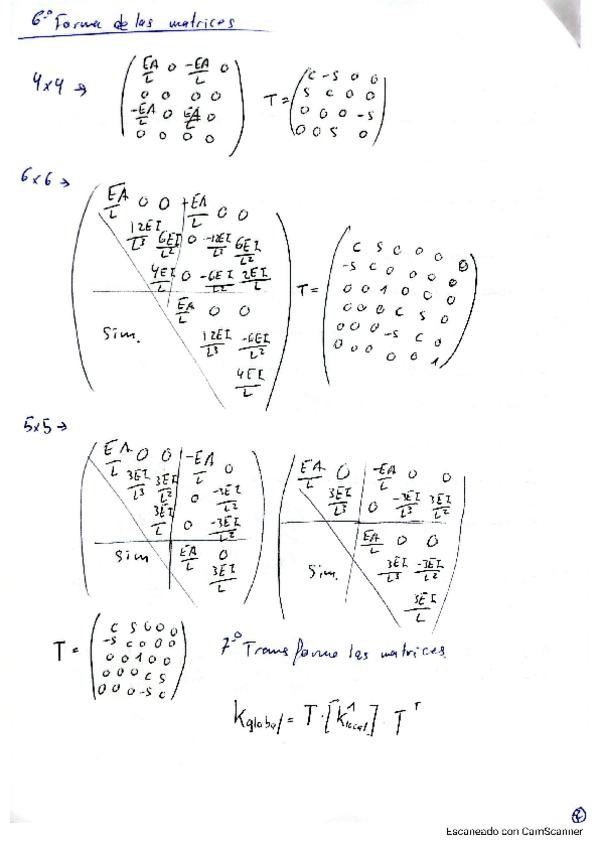 6.º Forma de las matrices
4x4 → ( EA/L 0 -EA/L 0
0 0 0 0
-EA/L 0 EA/L 0
0 0 0 0 )
T = ( c -s 0 0
s c 0 0
0 0 0 -s
0 0 s 0 )
6x6 → ( EA/L 0 0 +EA/L 0 0
12EI/L³ 6EI/L² 0 -12EI/L³ 6EI/L²
4EI/L 0 -6EI/L² 2EI/L
EA/L 0 0
Sim. 12EI/L³ -6EI/L²
4EI/L )
T = ( c s c 0 0 0
-s c 0 0 0 0
0 0 1 0 0 0
0 0 0 c s 0
0 0 0 -s c 0
0 0 0 0 0 1 )
5x5 → ( EA/L 0 0 -EA/L 0
3EI/L³ 3EI/L² 0 -3EI/L³
3EI/L 0 -3EI/L²
Sim EA/L 0
3EI/L )
( EA/L 0 -EA/L 0 0
3EI/L³ 0 -3EI/L³ 3EI/L²
EA/L 0 0
Sim. 3EI/L³ -3EI/L²
3EI/L )
T = ( c s 0 0 0
-s c 0 0 0
0 0 1 0 0
0 0 0 c s
0 0 0 -s c )
7º Transformo las matrices
Kglobal = T · [K¹local] · Tᵀ
2
Escaneado con CamScanner